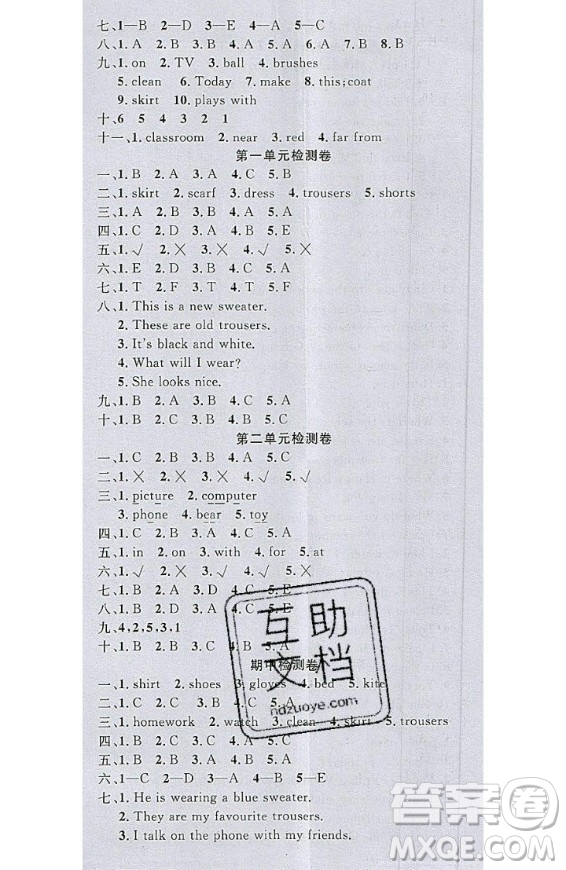 七、1—B 2—D 3—E 4—A 5—C
八、1. A 2. B 3. B 4. A 5. A 6. A 7. B 8. B
九、1. on 2. TV 3. ball 4. brushes
5. clean 6. Today 7. make 8. this;coat
9. skirt 10. plays with
十、6 5 4 3 2 1
十一、1. classroom 2. near 3. red 4. far from
第一单元检测卷
一、1. B 2. A 3. A 4. C 5. B
二、1. skirt 2. scarf 3. dress 4. trousers 5. shorts
三、1. A 2. B 3. B 4. A 5. A
四、1. C 2. D 3. B 4. E 5. A
五、1. √ 2. ╳ 3. ╳ 4. √ 5. ╳
六、1. E 2. D 3. B 4. A 5. C
七、1. T 2. F 3. T 4. T 5. F
八、1. This is a new sweater.
2. These are old trousers.
3. It's black and white.
4. What will I wear?
5. She looks nice.
九、1. B 2. A 3. B 4. C 5. A
十、1. B 2. A 3. B 4. A 5. B
第二单元检测卷
一、1. C 2. B 3. A 4. B 5. C
二、1. ╳ 2. ╳ 3. √ 4. √ 5. √
三、1. picture 2. computer
3. phone 4. bear 5. toy
四、1. C 2. B 3. A 4. C 5. A
五、1. in 2. on 3. with 4. for 5. at
六、1. √ 2. ╳ 3. ╳ 4. √ 5. √
七、1. B 2. A 3. D 4. C 5. E
八、1. B 2. A 3. C 4. B 5. A
九、4,2,5,3,1
十、1. B 2. B 3. A 4. C 5. A
期中检测卷
一、1. shirt 2. shoes 3. gloves 4. bed 5. kite
二、1. C 2. A 3. C 4. B 5. A
三、1. homework 2. watch 3. clean 4. skirt 5. trousers
四、1. B 2. C 3. A 4. B 5. C
五、1. B 2. A 3. B 4. A 5. A
六、1—C 2—D 3—A 4—B 5—E
七、1. He is wearing a blue sweater.
2. They are my favourite trousers.
3. I talk on the phone with my friends.
互助
文档
ndzuoye.com
答案圈
MXQE.COM